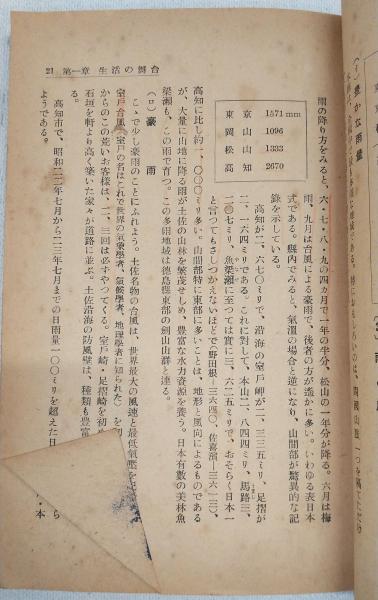 21 第一章 生活の舞台
雨の降り方をみると、六・七・八・九の四か月で一年の半分、松山の一年分が降る。六月は梅
雨、九月は台風による豪雨で、後者の方が遥かに多い。いわゆる表日本
式である。縣内でみると、氣溫の場合と逆になり、山間部が驚異的な記
録を示している。
東京 1571mm
岡山 1096
松山 1333
高知 2670
高知が二、六七〇ミリで、沿海の室戸岬が二、三三五ミリ、足摺が
二、一六四ミリである。これに對して、本山二、八四四ミリ、馬路三、
二〇七ミリ、魚梁瀬に至つては實に三、六二五ミリで、おそらく日本一
と言つてもさしつかえないほどで(野田根―三六四〇、佐喜濱―三六一三)、
高知に比し約一、〇〇〇ミリ多い。山間部特に東部に多いことは、地形と風向によるものである
が、大量に山地に降る雨が土佐の山林を繁茂せしめ、豊富な水力資源を養う。日本有數の美林魚
梁瀬も、この雨で育つ。この多雨地域は徳島縣東部の劍山山群と連る。
(ロ) 豪雨
こゝで少し豪雨のことにふれよう。土佐名物の台風は、世界最大の風速と最低氣壓を
室戸台風(室戸の名はこれで世界の氣象學者、氣候學者、地理學者に知られた)を初
からのこの荒いお客様は、二、三回は必ずやつてくる。室戸崎・足摺崎を初
石垣を軒より高く築いた家々が道路に並ぶ。土佐沿海の防風壁は、種類も豊富
る。
高知市で、昭和二二年七月から二三年七月までの日雨量一〇〇ミリを超えた日
ようである。